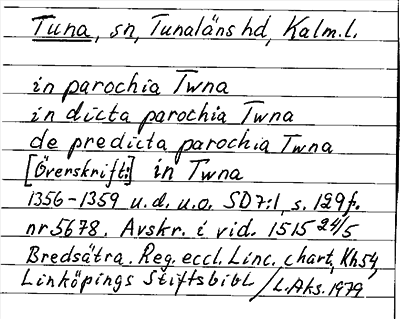 Tuna, sn, Tunaläns hd, Kalm.l.
in parochia Twna
in dicta parochia Twna
de predicta parochia Twna
[Överskrift:] in Twna
1356-1359 u.d. u.o. SD7:1, s. 129f.
nr.5678. Avskr. i vid. 1515 24/5
Bredsätra. Reg. eccl. Linc. chart, Kh54,
Linköpings Stiftsbibl / L.Aks.1979